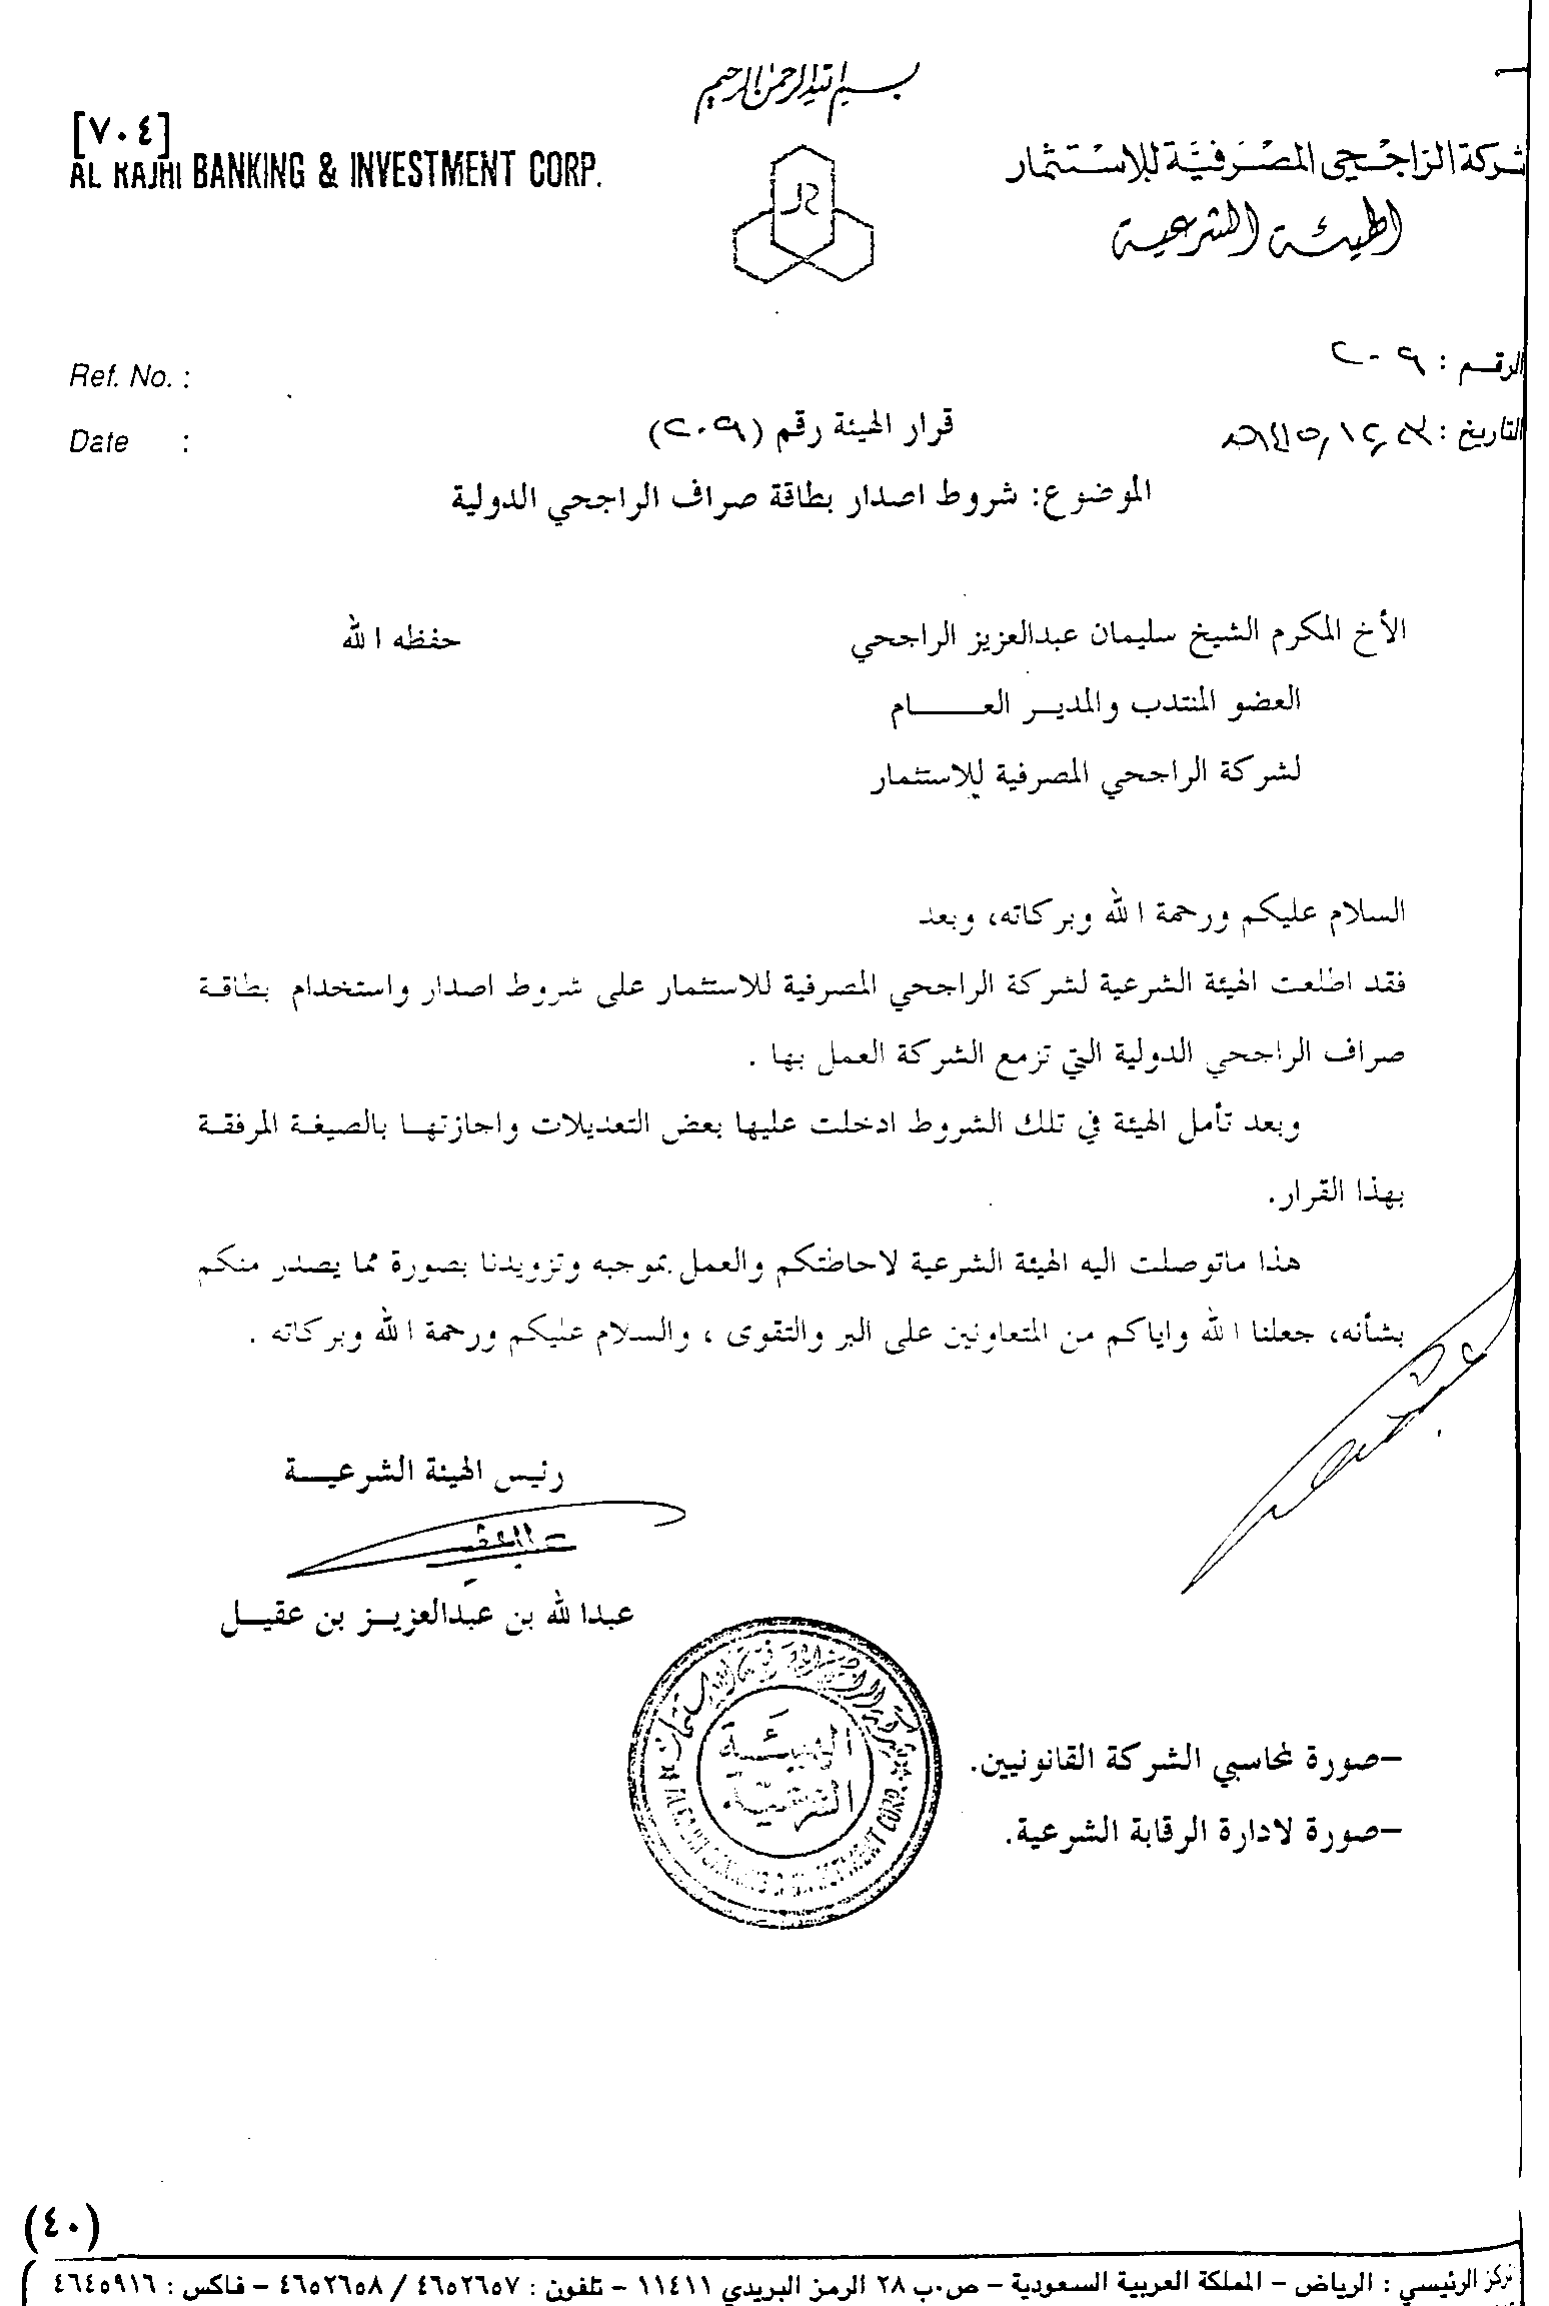 بسم الله الرحمن الرحيم
[٧٠٤]
AL RAJHI BANKING & INVESTMENT CORP.
شركة الراجحي المصرفية للاستثمار
الهيئة الشرعية
Ref. No. :
الرقم : ٢٠٩
Date :
التاريخ :
قرار الهيئة رقم (٢٠٩)
الموضوع: شروط اصدار بطاقة صراف الراجحي الدولية
الأخ المكرم الشيخ سليمان عبدالعزيز الراجحي حفظه الله
العضو المنتدب والمديـر العـــــــام
لشركة الراجحي المصرفية للاستثمار
السلام عليكم ورحمة الله وبركاته، وبعد
فقد اطلعت الهيئة الشرعية لشركة الراجحي المصرفية للاستثمار على شروط اصدار واستخدام بطاقـة
صراف الراجحي الدولية التي تزمع الشركة العمل بها .
وبعد تأمل الهيئة في تلك الشروط ادخلت عليها بعض التعديلات واجازتهـا بالصيغـة المرفقـة
بهذا القرار.
هذا ماتوصلت اليه الهيئة الشرعية لاحاطتكم والعمل بموجبه وتزويدنا بصورة مما يصدر منكم
بشأنه، جعلنا الله واياكم من المتعاونين على البر والتقوى ، والسلام عليكم ورحمة الله وبركاته .
رئيس الهيئة الشرعيـــة
عبدالله بن عبدالعزيـز بن عقيـل
الهيئة
الشرعية
–صورة لمحاسبي الشركة القانونيين.
–صورة لادارة الرقابة الشرعية.
(٤٠)
الرئيسي : الرياض – المملكة العربية السعودية – ص.ب ٢٨ الرمز البريدي ١١٤١١ – تلفون : ٤٦٥٢٦٥٧ / ٤٦٥٢٦٥٨ – فاكس : ٤٦٤٥٩١٦